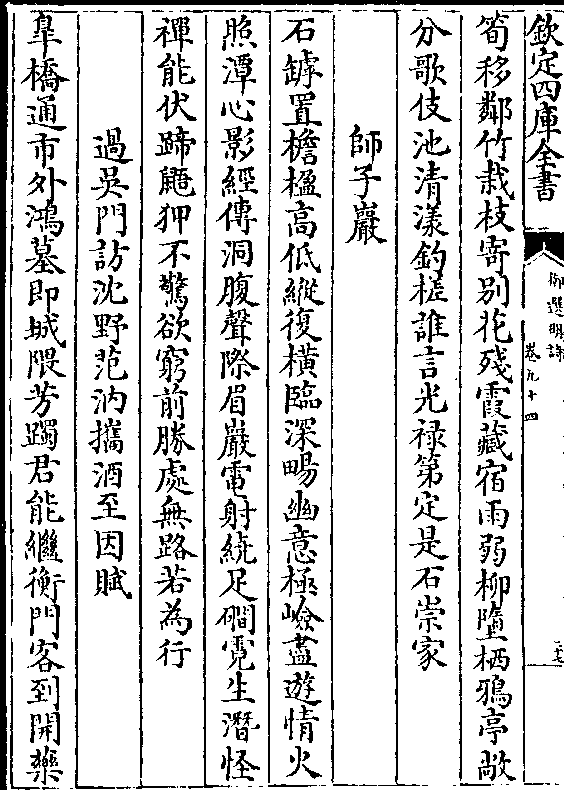 欽定四庫全書
御選明詩
卷九十四
筍移鄰竹栽枝寄别花殘霞藏宿雨弱柳墮栖鴉亭敞
分歌伎池清漾釣槎誰言光禄第定是石崇家
師子巖
石罅置檐楹高低縱復橫臨深暢幽意極嶮盡遊情火
照潭心影經傳洞腹聲際眉巖電射繞足磵霓生潛怪
禪能伏蹄鼯狎不驚欲窮前勝處無路若為行
過吳門訪沈野范汭攜酒至因賦
臯橋通市外鴻墓即城隈芳躅君能繼衡門客到開藥